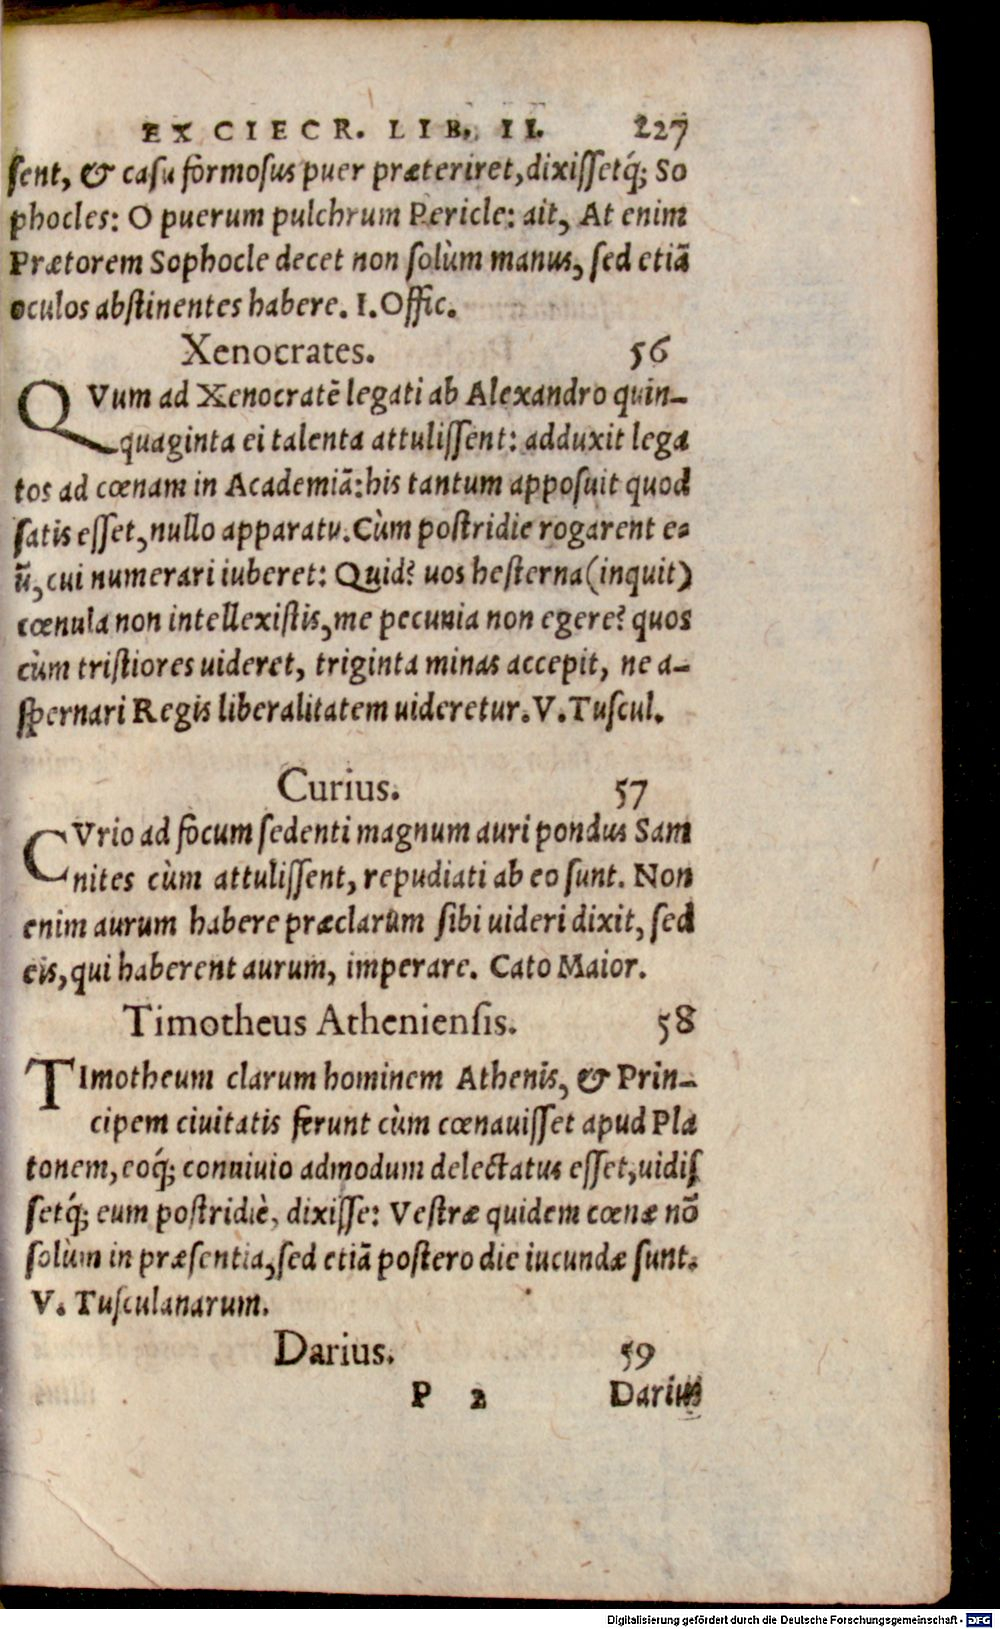 EX CIECR. LIB. II. 227
sent, & casu formosus puer præteriret, dixissetq́; So
phocles: O puerum pulchrum Pericle: ait, At enim
Prætorem Sophocle decet non solùm manus, sed etiã
oculos abstinentes habere. I. Offic.
Xenocrates. 56
QVum ad Xenocratẽ legati ab Alexandro quin-
quaginta ei talenta attulissent: adduxit lega
tos ad cœnam in Academiã: his tantum apposuit quod
satis esset, nullo apparatu. Cùm postridie rogarent e-
ũ, cui numerari iuberet: Quid? uos hesterna (inquit)
cœnula non intellexistis, me pecunia non egere? quos
cùm tristiores uideret, triginta minas accepit, ne a-
spernari Regis liberalitatem uideretur. V. Tuscul.
Curius. 57
CVrio ad focum sedenti magnum auri pondus Sam
nites cùm attulissent, repudiati ab eo sunt. Non
enim aurum habere præclarum sibi uideri dixit, sed
eis, qui haberent aurum, imperare. Cato Maior.
Timotheus Atheniensis. 58
TImotheum clarum hominem Athenis, & Prin-
cipem ciuitatis ferunt cùm cœnauisset apud Pla
tonem, eoq́; conuiuio admodum delectatus esset, uidis
setq́; eum postridiè, dixisse: Vestræ quidem cœnæ nõ
solùm in præsentia, sed etiã postero die iucundæ sunt.
V. Tusculanarum.
Darius. 59
P 2 Darius
Digitalisierung gefördert durch die Deutsche Forschungsgemeinschaft - DFG